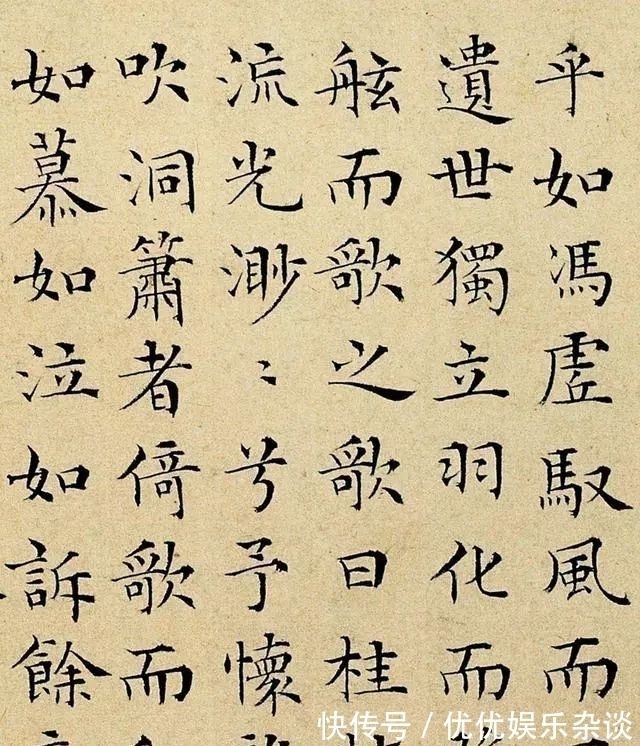 乎如馮虛馭風而
遺世獨立羽化而
舷而歌之歌曰桂
流光渺〻兮予懷
吹洞簫者倚歌而
如慕如泣如訴餘
快传号／优优娱乐杂谈